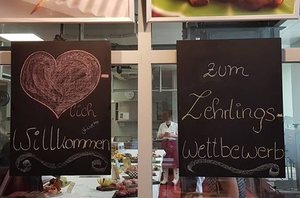 lich
Willkommen
zum
Lehrlings-
wettbewerb